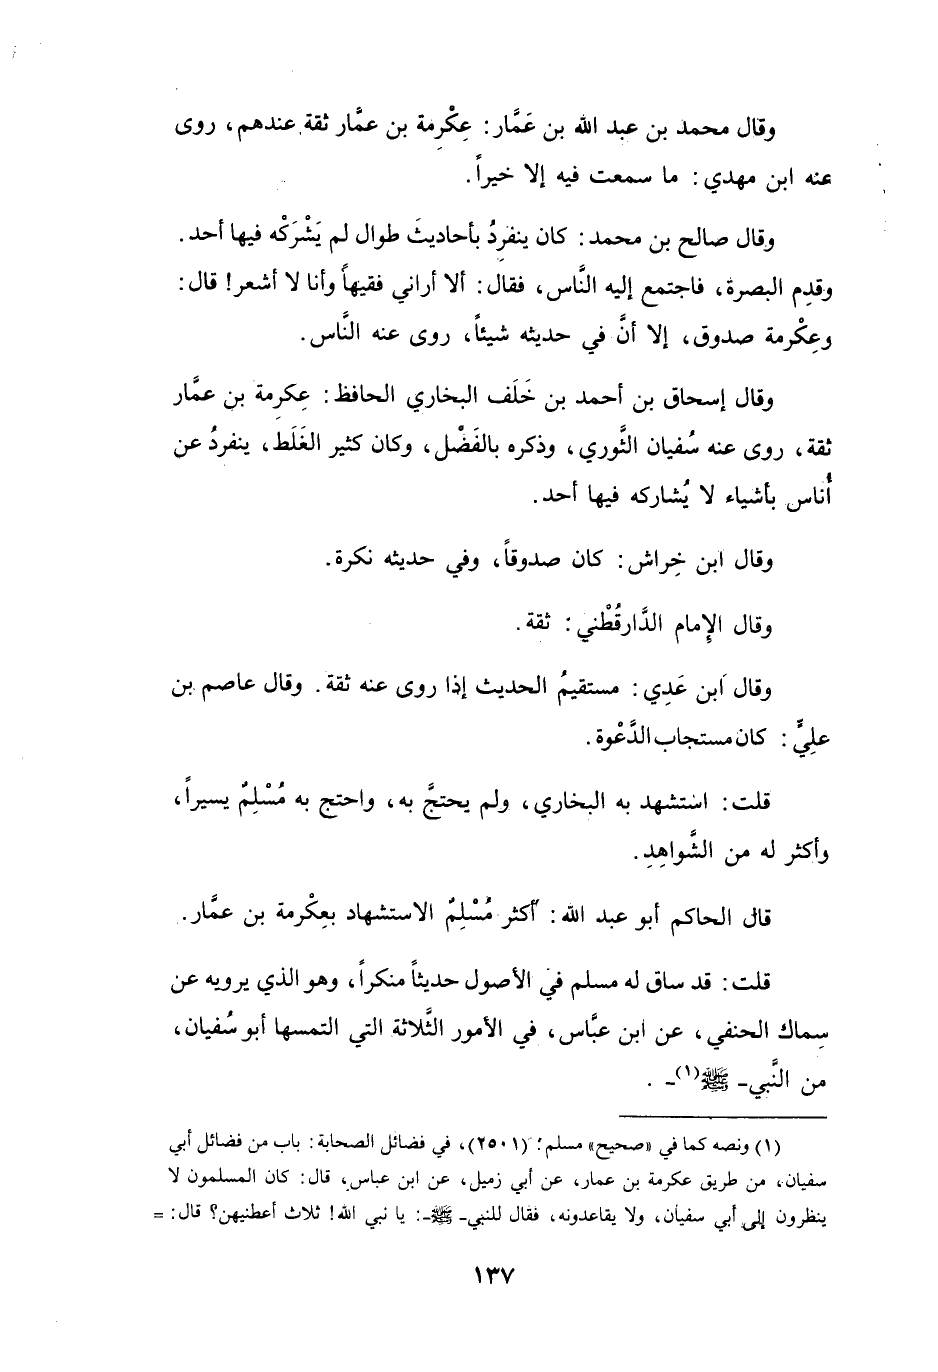 وقال محمد بن عبد الله بن عَمَّار: عِكْرِمة بن عمَّار ثقة عندهم، روى
عنه ابن مهدي: ما سمعت فيه إلا خيراً.
وقال صالح بن محمد: كان ينفرِدُ بأحاديثَ طوال لم يَشْرَكْه فيها أحد.
وقدِم البصرة، فاجتمع إليه النَّاس، فقال: ألا أراني فقيهاً وأنا لا أشعر! قال:
وعِكْرمة صدوق، إلا أنَّ في حديثه شيئاً، روى عنه النَّاس.
وقال إسحاق بن أحمد بن خَلَف البخاري الحافظ: عِكرِمة بن عمَّار
ثقة، روى عنه سُفيان الثَّوري، وذكره بالفَضْل، وكان كثير الغَلَط، ينفردُ عن
أُناس بأشياء لا يُشاركه فيها أحد.
وقال ابن خِراش: كان صدوقاً، وفي حديثه نكرة.
وقال الإمام الدَّارقُطْني: ثقة.
وقال ابن عَدِي: مستقيمُ الحديث إذا روى عنه ثقة. وقال عاصم بن
علِيٍّ: كان مستجاب الدَّعْوة.
قلت: استشهد به البخاري، ولم يحتجَّ به، واحتج به مُسْلِمٌ يسيراً،
وأكثر له من الشَّواهِدِ.
قال الحاكم أبو عبد الله: أكثر مُسْلِمٌ الاستشهاد بعِكْرمة بن عمَّار.
قلت: قد ساق له مسلم في الأصول حديثاً منكراً، وهو الذي يرويه عن
سِماك الحنفي، عن ابن عبَّاس، في الأمور الثَّلاثة التي التمسها أبو سُفيان،
من النَّبي - ﷺ(١) - .
(١) ونصه كما في «صحيح» مسلم؛ (٢٥٠١)، في فضائل الصحابة: باب من فضائل أبي
سفيان، من طريق عكرمة بن عمار، عن أبي زميل، عن ابن عباس، قال: كان المسلمون لا
ينظرون إلى أبي سفيان، ولا يقاعدونه، فقال للنبي - ﷺ -: يا نبي الله! ثلاث أعطنيهن؟ قال: =
١٣٧